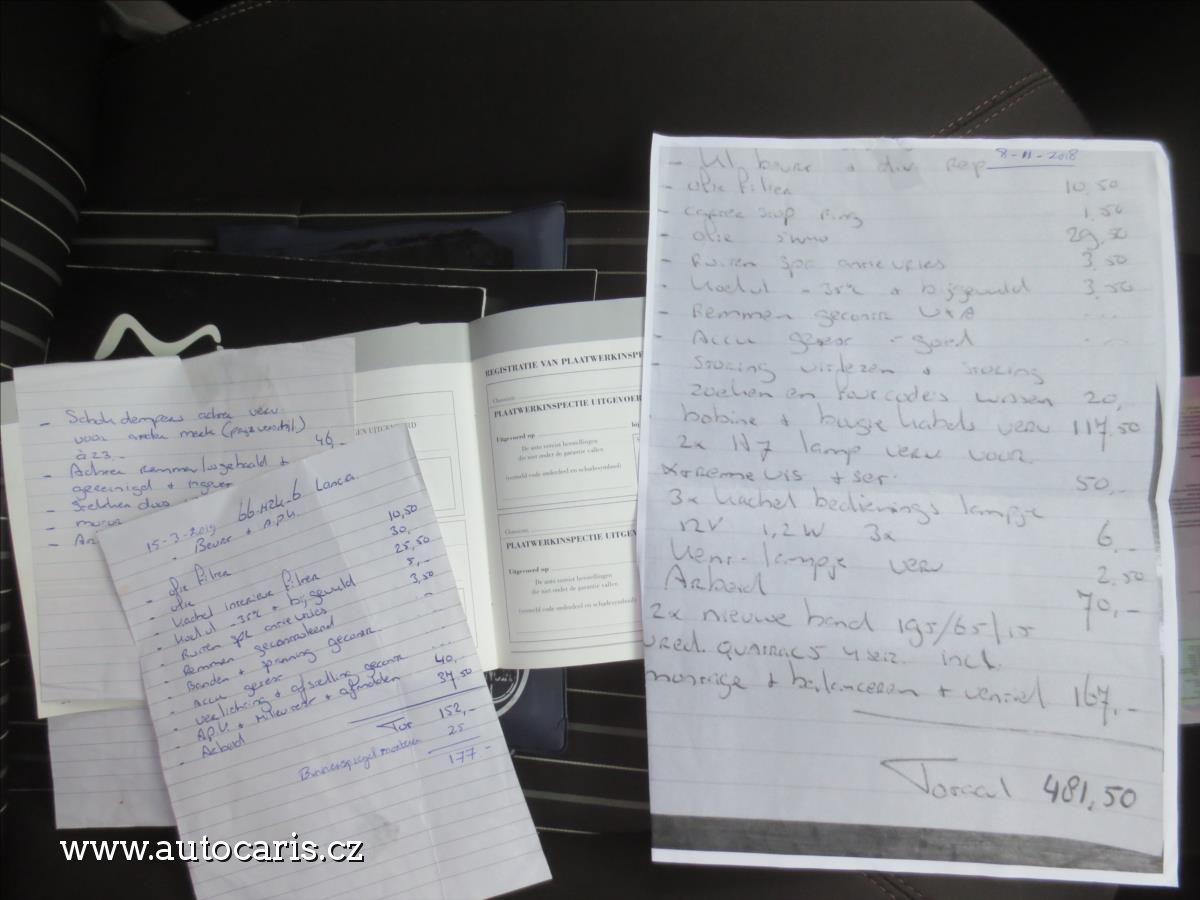 - Schokdempers achter verv.
voor ander merk
à 23,- 46,-
- Achter remmen losgehaald +
gereinigd +
15-3-2019 66-HZK-6 Lancia
- Beurt + A.P.K.
- olie filter 10,50
- olie 30,-
- Kachel interieur filter 25,50
- Koelvl -35% + bijgevuld 5,-
- Ruiten spr antievries 3,50
- Remmen gecontroleerd
- Banden + spanning gecontr
- Accu getest
- verlichting + afstelling gecontr
- A.P.K. + milieutest + afmelden 40,-
- Arbeid 37,50
Tot 152,-
Binnenspiegel monteren 25
177,-
REGISTRATIE VAN PLAATWERKINSPE
PLAATWERKINSPECTIE UITGEVOER
Uitgevoerd op
De auto vereist herstellingen
die niet onder de garantie vallen.
(vermeld code onderdeel en schadesymbool)
PLAATWERKINSPECTIE UITGEV
Uitgevoerd op
De auto vereist herstellingen
die niet onder de garantie vallen.
(vermeld code onderdeel en schadesymbool)
- Kl. beurt + div rep 8-11-2018
- olie filter 10,50
- carter stop ring 1,50
- olie 5w40 29,50
- Ruiten spr antievries 3,50
- Koelvl -35% + bijgevuld 3,50
- Remmen gecontr V+A
- Accu getest - goed
- Storing uitlezen + storing
zoeken en foutcodes wissen 20,-
- bobine + bugie kabels verv 117,50
- 2x H7 lamp verv voor.
50,-
- 3x Kachel bedienings lampje
12V 1,2W 3x 6,-
- Kent. lampje verv 2,50
- Arbeid 70,-
2x nieuwe band 195/65/15
vred. QUATRAC 5 4 seiz. incl.
montage + balanceren + ventiel 167,-
Totaal 481,50
www.autocaris.cz